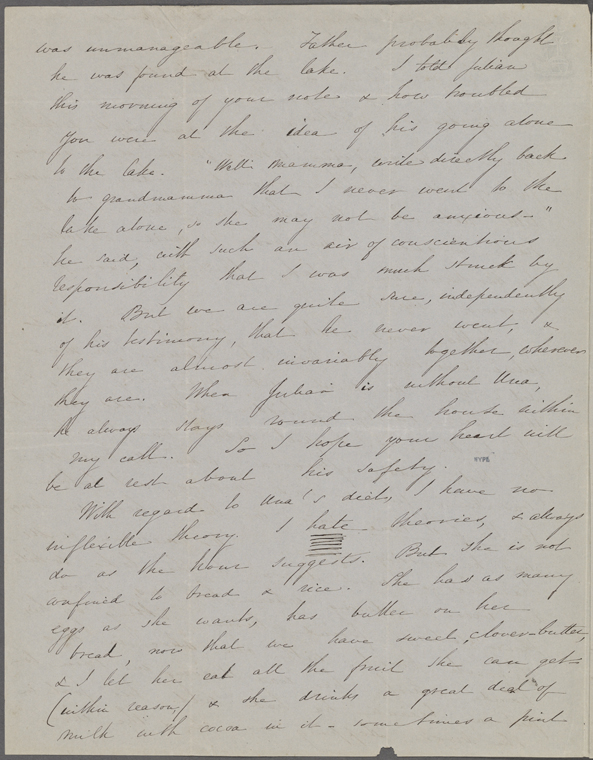 was unmanageable. Father probably thought
he was found at the lake. I told Julian
this morning of your note & how troubled
you were at the idea of his going alone
to the lake. "Well mamma, write directly back
to grandmamma that I never went to the
lake alone, so she may not be anxious—"
he said, with such an air of conscientious
responsibility that I was much struck by
it. But we are quite sure, independently
of his testimony, that he never went, &
they are almost invariably together, wherever
they are. When Julian is without Una,
he always stays round the house within
my call. So I hope your heart will
be at rest about his safety.
With regard to Una's diet, I have no
inflexible theory. I hate theories, & always
do as the hour suggests. But she is not
confined to bread & rice. She has as many
eggs as she wants, has butter on her
bread, now that we have sweet, clover-butter,
& I let her eat all the fruit she can get—
(within reason,) & she drinks a great deal of
milk with cocoa in it — sometimes a pint